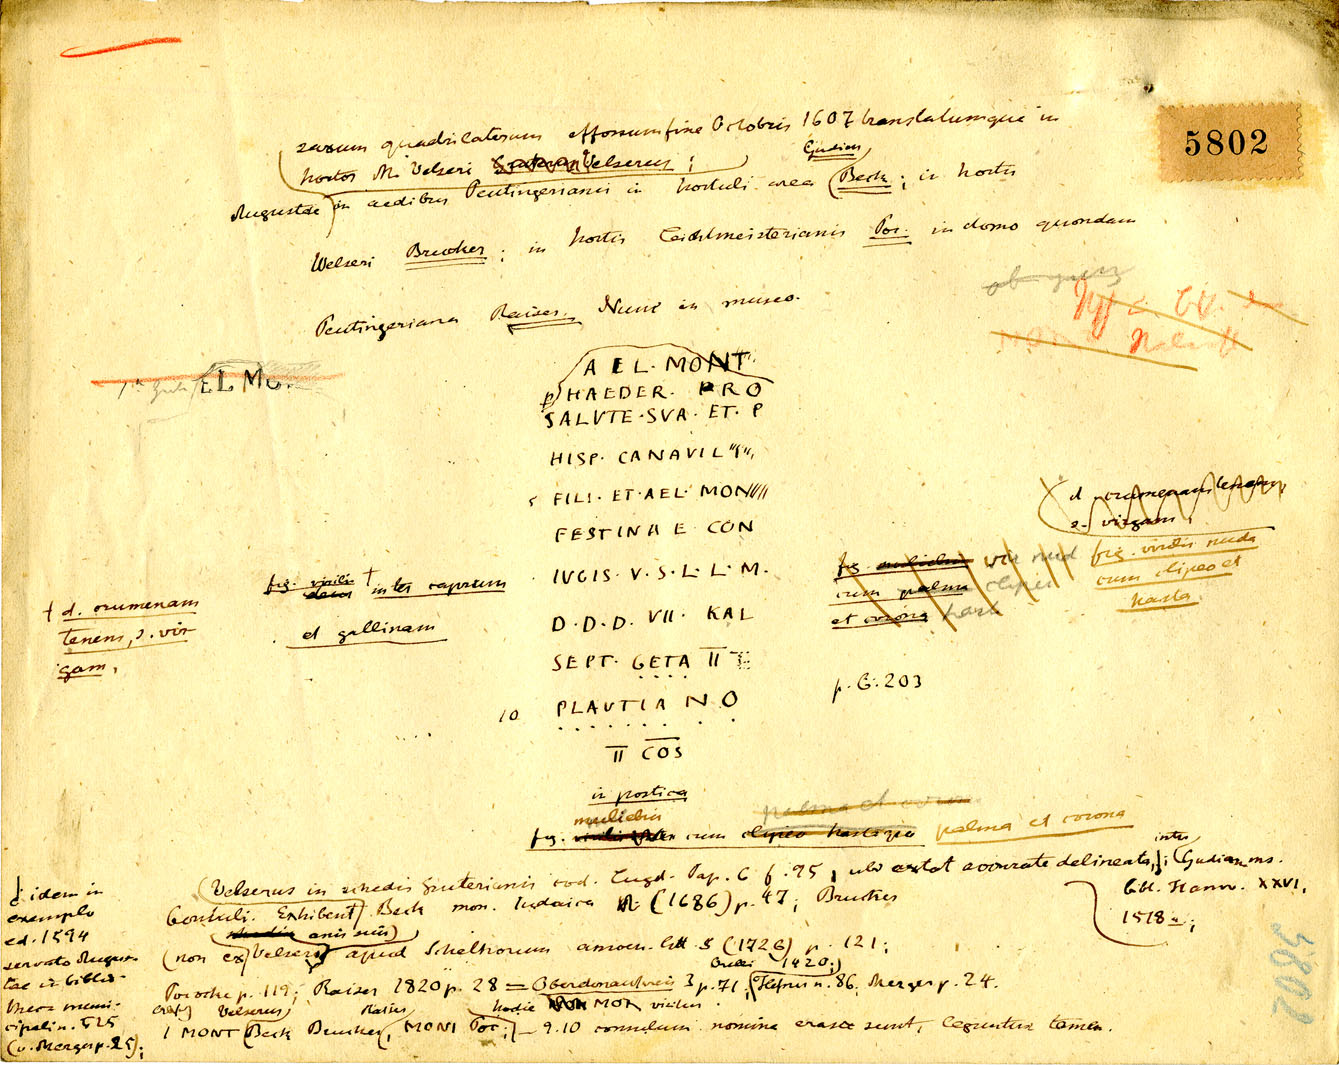 5802
saxum quadrilaterum effossum fine Octobris 1607 translatumque in
hortos M. Velseri Velserus;
Gudius
Augustae in aedibus Peutingerianis in hortuli area Beck; in hortis
Welseri Brucker; in hortis Teichlmeisterianis Poc. in domo quondam
Peutingeriana Raiser. Nunc in museo.
ELMO
AEL·MONT
PHAEDER· PRO
SALVTE·SVA·ET·P
HISP·CANAVIL
5 FILI·ET·AEL·MON
FESTINAE CON
IVGIS·V·S·L·L·M·
D·D·D·VII·KAL
SEPT·GETA II
10 PLAVTIANO
II COS
d. crumenam tenens
s. virgam
fig. virilis † inter caprum
et gallinam
† d. crumenam
tenens, s. vir
gam,
fig. muliebris
cum palma
et corona
fig. virilis nuda
cum clipeo et
hasta.
p. C. 203
in postica
palma et corona
muliebris
fig. cum clipeo hastaque palma et corona
Velserus in schedis Gruterianis cod. Lugd. Pap. 6 f. 95, ubi extat accurate delineata, inter Gudian. ms.
Consuli. Exhibent Beck mon. Iudaica (1686) p. 47; Brucker
Bibl. Hann. XXVI,
1518
(non ex) Velsero apud Schelhorum amoen. litt. 5 (1726) p. 121;
Orelli 1420;
Pococke p. 119; Raiser 1820 p. 28 = Oberdonaukreis 3 p. 71, Hefner n. 86, Mezger p. 24.
Velserus Raiser hodie MON visitur
1 MONT Beck Brucker, MONI Poc.; — 9.10 consulum nomina erasa sunt, leguntur tamen.
idem in
exemplo
ed. 1594
servato Augus-
tae in biblio-
theca muni-
cipali n. 525
(v. Mezger p. 25);
5802